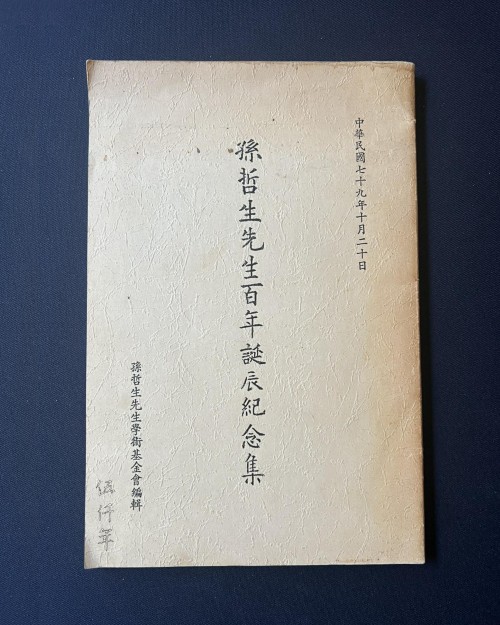 中華民國七十九年十月二十日
孫哲生先生百年誕辰紀念集
孫哲生先生學術基金會編輯